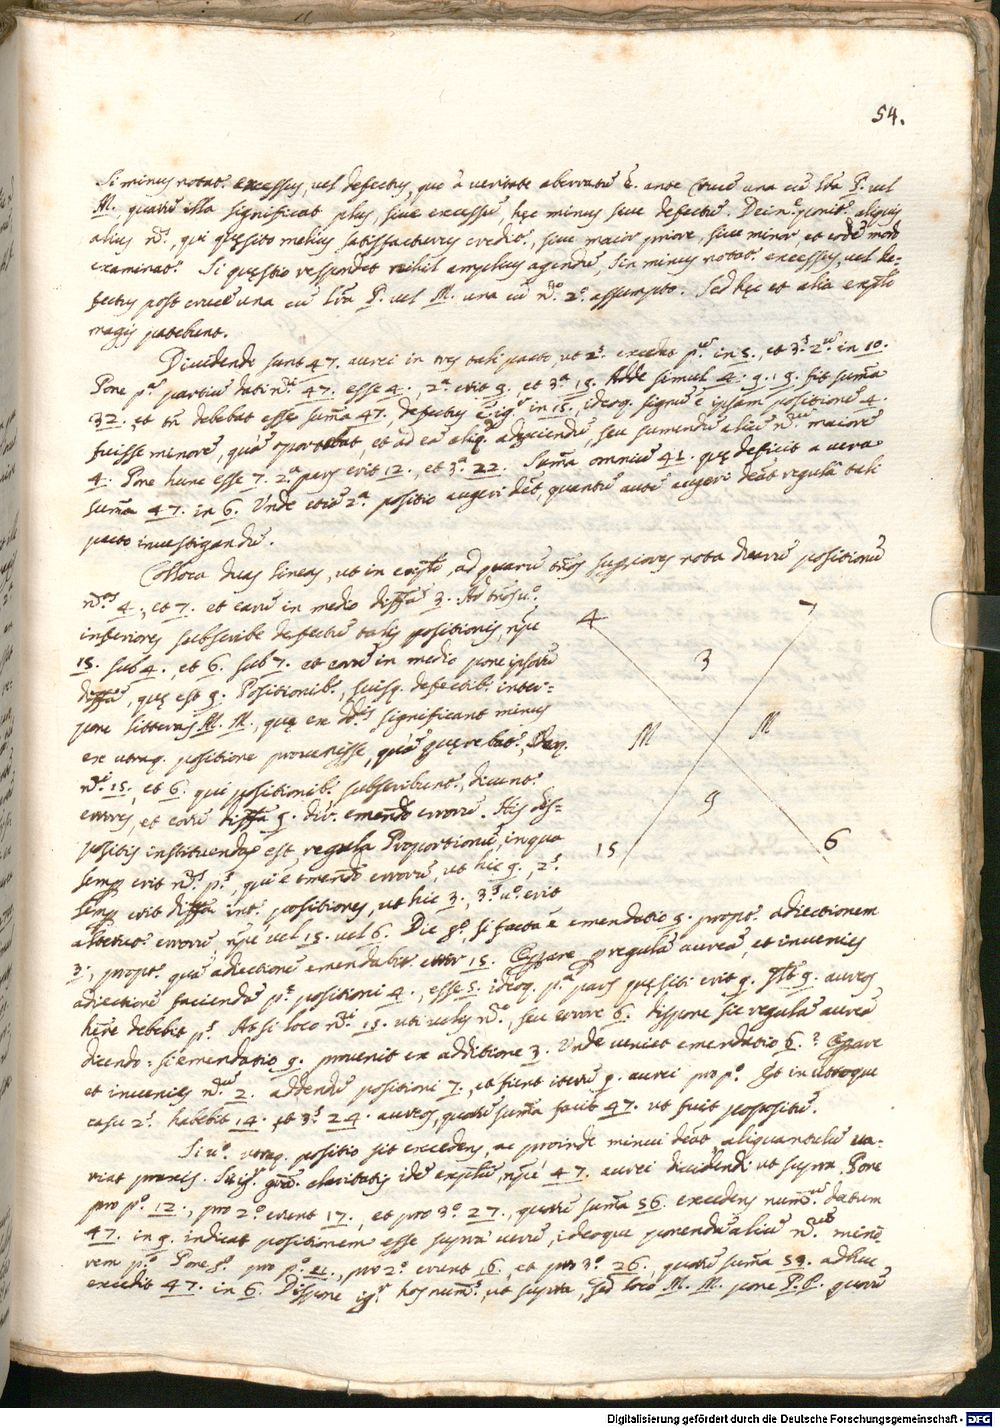 54.
Si minus notat excessus, vel defectus, quo a veritate aberratū ē. ante crucē una cū lra P. vel
M., quarū illa significat plus, sive excessū, hęc minus sive defectū. Dein ponit aliquis
alius nrs, qui quęsito melius satisfacturus credit, sive maior priore, sive minor et eodē modo
examinat. Si quęstio respondet nihil amplius agendū, Sin minus notat excessus, vel de-
fectus post crucē una cū lra P. vel M. una cū nro 2o assumpto. Sed hęc et alia explo
magis patebunt.
Dividendi sunt 47. aurei in tres tali pacto, ut 2s excedat pus in 5., et 3s 2us in 10.
Pone pa partiū dati nri 47. esse 4., 2a erit 9. et 3a 19. Adde simul 4. 9. 19. fit suma
32. et tn debebat esse suma 47. defectus ē igr in 15., ideoq. signū ē ipsam positionē 4.
fuisse minorē, quā oportebat, et ad eā aliqd adyciendū, seu sumendū aliū nrū maiorē
4. Pone hunc esse 7. 2a pars erit 12., et 3a 22. Suma omniū 41. quę deficit a vera
suma 47. in 6. Unde etiā 2a positio augeri debt, quantū autē augeri debeat regula tali
pacto investigandū.
Colloca duas lineas, ut in explo, ad quarū trnos supiores nota duarū positionū
nros 4., et 7. et earū in medio diffra 3. Ad trnos uo
inferiores subscribe defectus talis positionis, npe
15. sub 4., et 6. sub 7. et eorū in medio pone ipsorū
diffra, quę est 9. Positionib., suisq. defectib. inter-
pone litteras M. M., quę ex dtis significant minus
ex utraq. positione provenisse, quā quęrebat,
nri 15., et 6. qui positionib. subscribunt, dicunt
errores, et eorū diffra 9. dir. emendo errorū. His dis-
positis instituenda est regula Proportionū, in qua
semp erit nrs ps, qui ē emendo errorū, ut hic 9., 2s
semp erit diffra int. positiones, ut hic 3., 3s uo erit
alteruter errorū, npe vel 15. vel 6. Dic go, si facta ē emendatio 9. propt adiectionem
3., propt quā adiectionē emendabit error 15. Opare p regulā aureā, et invenies
adiectionē faciendā pę positioni 4., esse 5. ideoq. pa pars quęsiti erit 9. 9. aureos
habere debebit ps. At si loco nri 15. uti velis nro, seu errore 6. dispone sic regulā aureā
dicendo: si emendatio 9. provenit ex additione 3. Unde veniet emendatio 6.? Opare
et invenies nrū 2. addendū positioni 7., et fient iterū 9. aurei pro po. Et in utroque
casu 2s habebit 14. et 3s 24. aureos, quorū suma facit 47. ut fuit propositū.
Si uo utraq. positio sit excedens, ac proinde minui debeat, aliquantulū va-
riat praxis. Sit igr gra. claritatis idē explū, npe 47. aurei dividendi ut supra. Pone
pro po 12., pro 2o erunt 17., et pro 3o 27., quorū suma 56 excedens numrū datum
47. in 9. indicat positionem esse supra verū, ideoque ponendū aliū nrū mino-
rem po. Pone go pro po 11., pro 2o erunt 16., et pro 3o 26., quorū suma 53. adhuc
excedit 47. in 6. Dispone igr hos numos, ut supra, sed loco M. M. pone P. P. quorū
4 7
3
M M
9
15 6
Digitalisierung gefördert durch die Deutsche Forschungsgemeinschaft - DFG